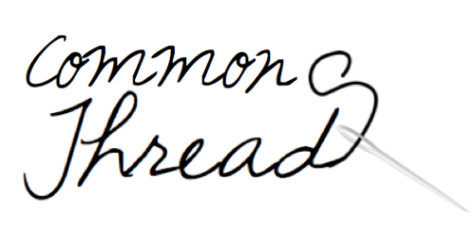 Common
Thread